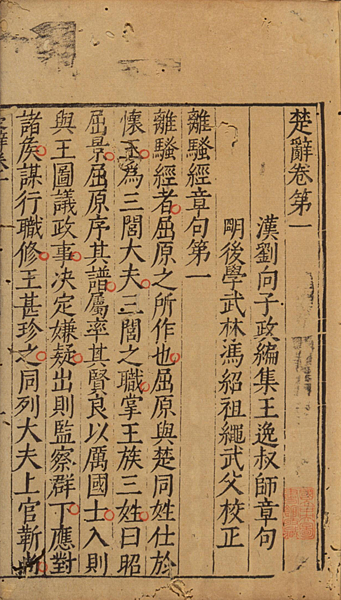 楚辭卷第一
漢劉向子政編集王逸叔師章句
明後學武林馮紹祖繩武父校正
離騷經章句第一
離騷經者屈原之所作也屈原與楚同姓仕於
懷王爲三閭大夫三閭之職掌王族三姓曰昭
屈景屈原序其譜屬率其賢良以厲國士入則
與王圖議政事决定嫌疑出則監察群下應對
諸侯謀行職修王甚珍之同列大夫上官靳尚